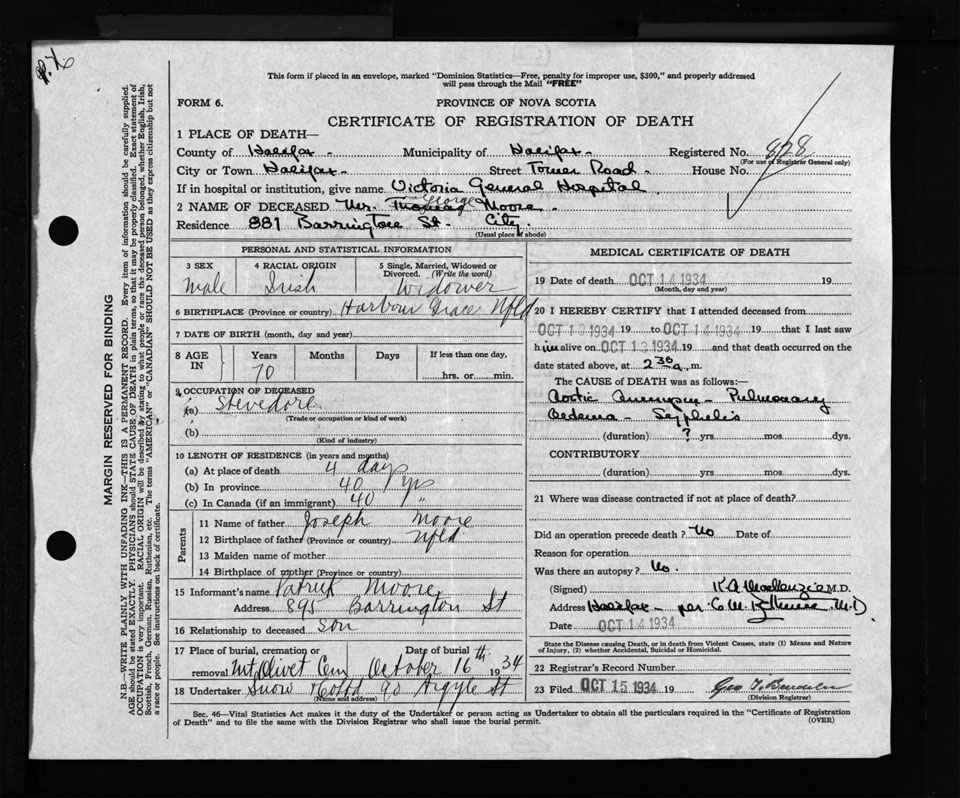 This form if placed in an envelope, marked "Dominion Statistics—Free, penalty for improper use, $300," and properly addressed
will pass through the Mail "FREE"
FORM 6.
PROVINCE OF NOVA SCOTIA
CERTIFICATE OF REGISTRATION OF DEATH
1 PLACE OF DEATH—
County of Halifax - Municipality of Halifax - Registered No. 828
(For use of Registrar General only)
City or Town Halifax - Street Tower Road - House No.
If in hospital or institution, give name Victoria General Hospital.
2 NAME OF DECEASED Mr. Thomas George Moore.
Residence 881 Barrington St. City.
(Usual place of abode)
PERSONAL AND STATISTICAL INFORMATION
3 SEX 4 RACIAL ORIGIN 5 Single, Married, Widowed or
Divorced. (Write the word)
Male Irish Widower
6 BIRTHPLACE (Province or country) Harbour Grace Nfld
7 DATE OF BIRTH (month, day and year)
8 AGE IN Years Months Days If less than one day,
70 hrs. or min.
9 OCCUPATION OF DECEASED
(a) Stevedore
(Trade or occupation or kind of work)
(b)
(Kind of industry)
10 LENGTH OF RESIDENCE (in years and months)
(a) At place of death 4 days
(b) In province 40 yrs
(c) In Canada (if an immigrant) 40 "
Parents
11 Name of father Joseph Moore
12 Birthplace of father (Province or country) Nfld.
13 Maiden name of mother
14 Birthplace of mother (Province or country)
15 Informant's name Patrick Moore
Address 895 Barrington St
16 Relationship to deceased son
17 Place of burial, cremation or Date of burial
removal Mt Olivet Cem October 16th 1934
18 Undertaker Snow & Co Ltd 90 Argyle St
(Name and address)
MEDICAL CERTIFICATE OF DEATH
19 Date of death OCT 14 1934 19
(Month, day and year)
20 I HEREBY CERTIFY that I attended deceased from
OCT 10 1934 19 to OCT 14 1934 that I last saw
him alive on OCT 13 1934 19 and that death occurred on the
date stated above, at 2 30 a. m.
The CAUSE of DEATH was as follows:—
Aortic Aneurysm - Pulmonary
Oedema - Syphilis
(duration) ? yrs. mos. dys.
CONTRIBUTORY
(duration) yrs. mos. dys.
21 Where was disease contracted if not at place of death?
Did an operation precede death? No Date of
Reason for operation
Was there an autopsy? No.
(Signed) K A MacKenzie M.D.
Address Halifax - per M.D
Date OCT 14 1934
State the Disease causing Death, or in death from Violent Causes, state (1) Means and Nature
of Injury, (2) whether Accidental, Suicidal or Homicidal.
22 Registrar's Record Number
23 Filed OCT 15 1934 19
(Division Registrar)
Sec. 46—Vital Statistics Act makes it the duty of the Undertaker or person acting as Undertaker to obtain all the particulars required in the "Certificate of Registration
of Death" and to file the same with the Division Registrar who shall issue the burial permit. (OVER)
MARGIN RESERVED FOR BINDING
N.B.—WRITE PLAINLY WITH UNFADING INK—THIS IS A PERMANENT RECORD. Every item of information should be carefully supplied.
AGE should be stated EXACTLY. PHYSICIANS should STATE CAUSE OF DEATH in plain terms, so that it may be properly classified. Exact statement of
OCCUPATION is very important. RACIAL ORIGIN will be described by stating to what people or race the deceased person belonged, whether English, Irish,
Scottish, French, German, Russian, Ruthenian, etc. The terms "AMERICAN" or "CANADIAN" SHOULD NOT BE USED as they express citizenship but not
a race or people. See instructions on back of certificate.